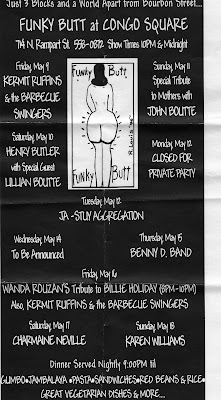 Just 3 Blocks and a World Apart from Bourbon Street...
FUNKY BUTT at CONGO SQUARE
714 N. Rampart St. 558-0872 Show Times 10PM & Midnight
Friday, May 9
KERMIT RUFFINS
& the BARBECUE
SWINGERS
Saturday, May 10
HENRY BUTLER
with Special Guest
LILLIAN BOUTTE
Funky Butt
R. Louis
Funky Butt
Sunday, May 11
Special Tribute
to Mothers with
JOHN BOUTTE
Monday, May 12
CLOSED FOR
PRIVATE PARTY
Tuesday, May 12
JA -STUY AGGREGATION
Wednesday, May 14
To Be Announced
Thursday, May 15
BENNY D. BAND
Friday, May 16
WANDA ROUZAN'S Tribute to BILLIE HOLIDAY (8PM-10PM)
Also, KERMIT RUFFINS & the BARBECUE SWINGERS
Saturday, May 17
CHARMAINE NEVILLE
Sunday, May 18
KAREN WILLIAMS
Dinner Served Nightly 9:00PM til
GUMBO•JAMBALAYA •PASTA•SANDWICHES•RED BEANS & RICE•
GREAT VEGETARIAN DISHES & MORE...